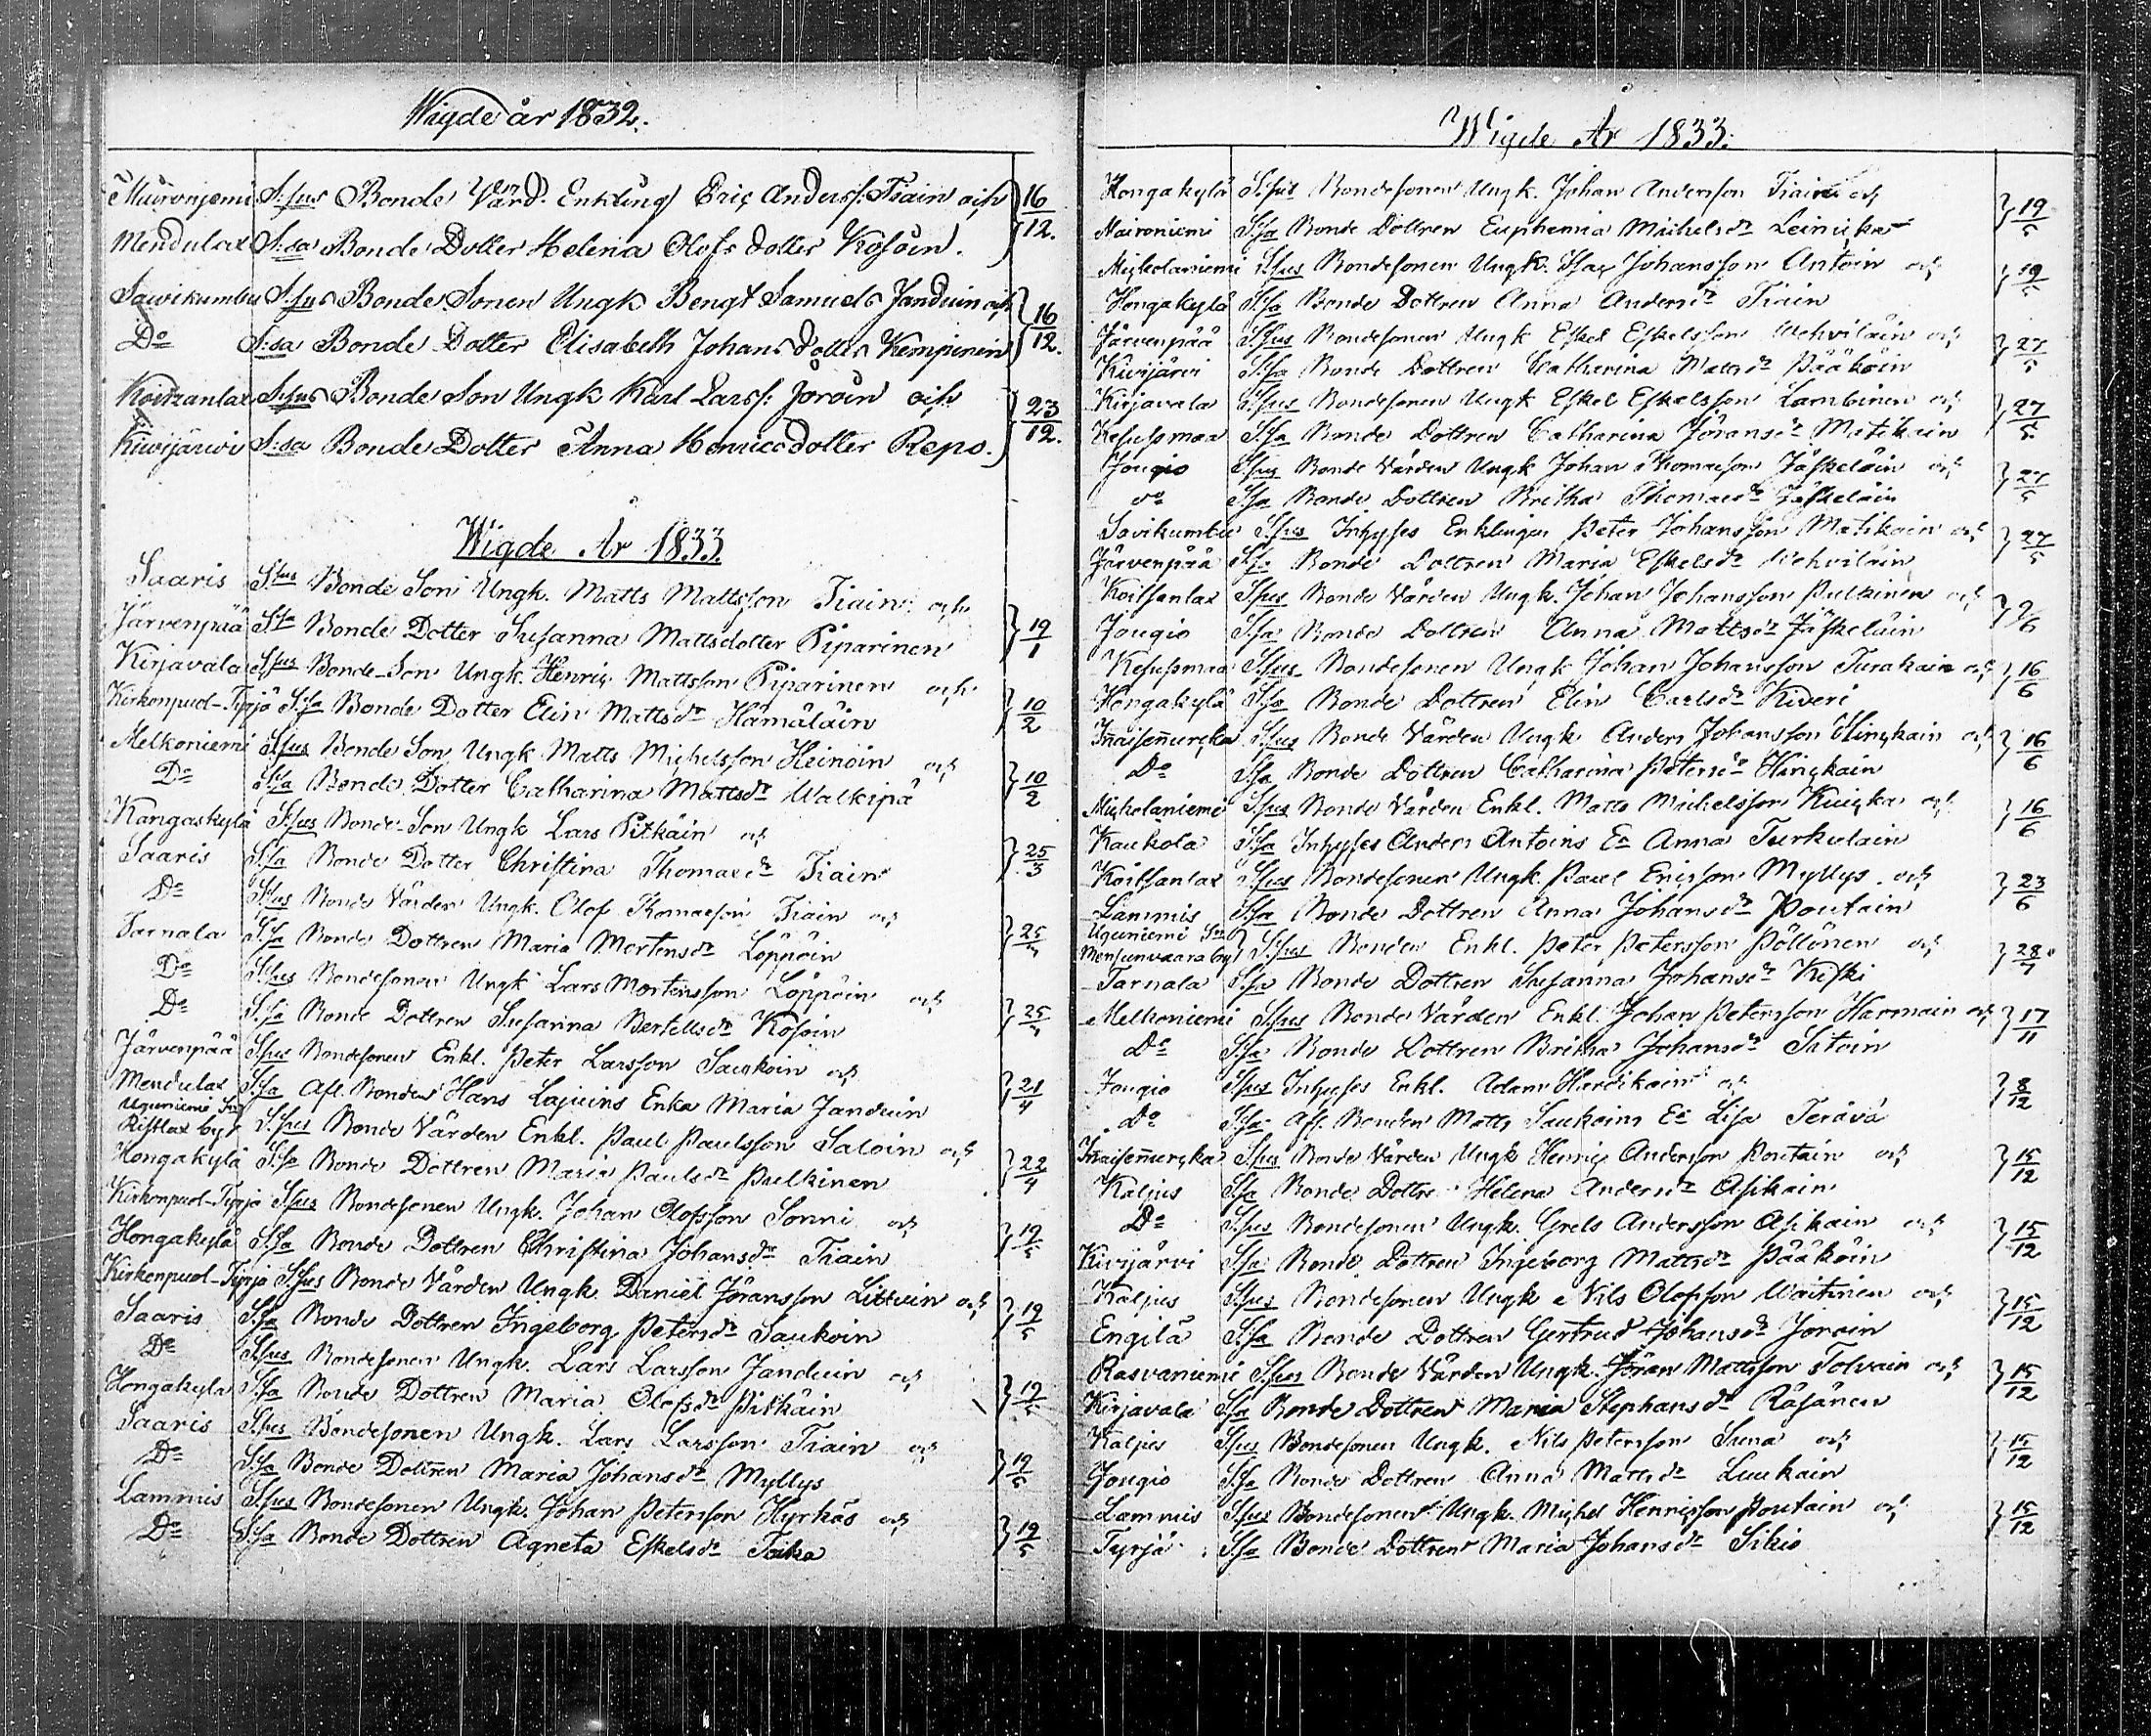 Wigde år 1832.
Muironjemi S:sus Bonde Värd. Enkling Eric Anderss: Tiain och } 16/12.
Mendulax S:sa Bonde Dotter Helena Olofs dotter Kosoin.
Sawikumbu S:sus Bonde Sonen Ungk Bengt Samuels Janduin och } 16/12.
Do S:sa Bonde Dotter Elisabeth Johans dotter Kempinen
Koitzanlax S:sus Bonde Son Ungk Karl Larss: Joroin och } 23/12.
Kiwijärwi S:sa Bonde Dotter Anna Henricsdotter Repo.
Wigde År 1833.
Saaris S:sus Bonde Son Ungk. Matts Mattsson Tiain och
Järvenpää S:sa Bonde Dotter Susanna Mattsdotter Piparinen } 19/1
Kirjavala S:sus Bonde-Son Ungk. Henric Mattsson Piparinen och
Kirkonpuol-Tyrjä S:sa Bonde Dotter Elin Mattsdr Hämäläin } 10/2
Melkoniemi S:sus Bonde Son Ungk Matts Michelsson Heinoin och
Do S:sa Bonde Dotter Catharina Mattsdr Walkipä } 10/2
Kangaskylä S:sus Bonde-Son Ungk Lars Pitkäin och
Saaris S:sa Bonde Dotter Christina Thomaedr Tiain } 25/3
Do S:sus Bonde Värden Ungk. Olof Thomaeson Tiain och
Tarnala S:sa Bonde Dottren Maria Mortensdr Löppöin } 25/4
Do S:sus Bondesonen Ungk Lars Mortensson Löppöin och
Do S:sa Bonde Dottren Susanna Bertellsdr Kosoin } 25/4
Järvenpää S:sus Bondesonen Enkl. Peter Larsson Saukoin och
Mendulax S:sa Afl. Bonden Hans Lajuins Enka Maria Janduin } 21/4
Uguniemi Sn Ristlax by S:sus Bonde Värden Enkl. Paul Paulsson Saloin och
Hongakylä S:sa Bonde Dottren Maria Paulsdr Pulkinen } 22/4
Kirkonpuol-Tyrjä S:sus Bondesonen Ungk. Johan Olofsson Sonni och
Hongakylä S:sa Bonde Dottren Christina Johansdr Tiain } 19/5
Kirkonpuol-Tyrjä S:sus Bonde Värden Ungk. Daniel Jöransson Littuin och
Saaris S:sa Bonde Dottren Ingeborg Petersdr Saukoin } 19/5
Do S:sus Bondesonen Ungk. Lars Larsson Janduin och
Hongakylä S:sa Bonde Dottren Maria Olofsdr Pitkäin } 19/5
Saaris S:sus Bondesonen Ungk. Lars Larsson Tiain och
Do S:sa Bonde Dottren Maria Johansdr Myllys } 19/5
Lammis S:sus Bondesonen Ungk. Johan Petersson Hyrkäs och
Do S:sa Bonde Dottren Agneta Eskelsdr Toika } 19/5
Wigde År 1833.
Hongakylä S:sus Bondesonen Ungk. Johan Andersson Tiain och } 19/5
Naironiemi S:sa Bonde Dottren Euphemia Michelsdr Leinicka
Mickolaniemi S:sus Bondesonen Ungk. Isac Johansson Antoin och } 19/5
Hongakylä S:sa Bonde Dottren Anna Andersdr Tiain
Järvenpää S:sus Bondesonen Ungk Eskel Eskelsson Wehviläin och } 27/5
Kivijärvi S:sa Bonde Dottren Catharina Mattsdr Pääköin
Kirjavala S:sus Bondesonen Ungk Eskel Eskelsson Lambinen och } 27/5
Kesusmaa S:sa Bonde Dottren Catharina Jöransdr Matikain
Jougio S:sus Bonde Värden Ungk Johan Thomaeson Jäskeläin och } 27/5
do S:sa Bonde Dottren Britha Thomaedr Jäskeläin
Savikumbu S:sus Inhyses Enklingen Peter Johansson Matikain och } 27/5
Järvenpää S:sa Bonde Dottren Maria Eskelsdr Wehviläin
Koitsanlax S:sus Bonde Värden Ungk. Johan Johansson Pulkinen och } 9/6
Jougio S:sa Bonde Dottren Anna Mattsdr Jäskeläin
Kesusmaa S:sus Bondesonen Ungk Johan Johansson Turakain och } 16/6
Hongakylä S:sa Bonde Dottren Elin Carlsdr Kiveri
Innaisenurcka S:sus Bonde Värden Ungk. Anders Johansson Hinckain och } 16/6
Do S:sa Bonde Dottren Catharina Petersdr Hinckain
Mickolaniemi S:sus Bonde Värden Enkl. Matts Michelsson Kuicka och } 16/6
Kaukola S:sa Inhyses Anders Antoins Ea Anna Turkulain
Koitsanlax S:sus Bondesonen Ungk. Paul Ericsson Myllys och } 23/6
Lammis S:sa Bonde Dottren Anna Johansdr Poutain
Uguniemi Sn Mensunvaara by S:sus Bonden Enkl. Peter Petersson Pöllönen och } 28/7
Tarnala S:sa Bonde Dottren Susanna Johansdr Keski
Melkoniemi S:sus Bonde Värden Enkl. Johan Petersson Harmain och } 17/11
Do S:sa Bonde Dottren Britha Johansdr Sitoin
Jougio S:sus Inhyses Enkl. Adam Hardikain och } 8/12
Do S:sa Afl. Bonden Matts Saukoins Ea Lisa Terävä
Innaisenurcka S:sus Bonde Värden Ungk Henric Andersson Poutain och } 15/12
Kaljus S:sa Bonde Dottren Helena Andersdr Asikain
Do S:sus Bondesonen Ungk. Grels Andersson Asikain och } 15/12
Kivijärvi S:sa Bonde Dottren Ingeborg Mattsdr Pääköin
Kaljus S:sus Bondesonen Ungk Nils Olofsson Waitinen och } 15/12
Engilä S:sa Bonde Dottren Gertrud Johansdr Joroin
Rasvaniemi S:sus Bonde Värden Ungk. Jöran Mattsson Tolvain och } 15/12
Kirjavala S:sa Bonde Dottren Maria Stephansdr Räsänen
Kaljus S:sus Bondesonen Ungk. Nils Petersson Suna och } 15/12
Jougio S:sa Bonde Dottren Anna Mattsdr Luukain
Lammis S:sus Bondesonen Ungk. Michel Henricsson Poutain och } 15/12
Tyrjä S:sa Bonde Dottren Maria Johansdr Sikio